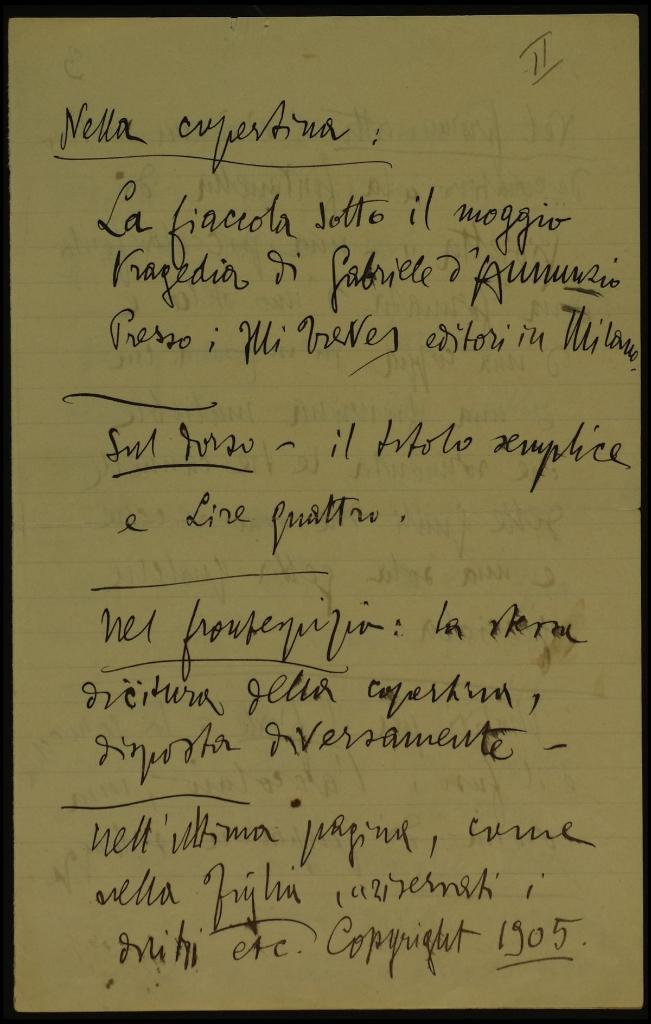 II
Nella copertina:
La fiaccola sotto il moggio
tragedia di Gabriele d'Annunzio
Presso i F.lli Treves editori in Milano.
Sul dorso – il titolo semplice
e Lire quattro.
Nel frontespizio: la stessa
dicitura della copertina,
disposta diversamente –
Nell'ultima pagina, come
nella Figlia, "riservati i
diritti etc. Copyright 1905.